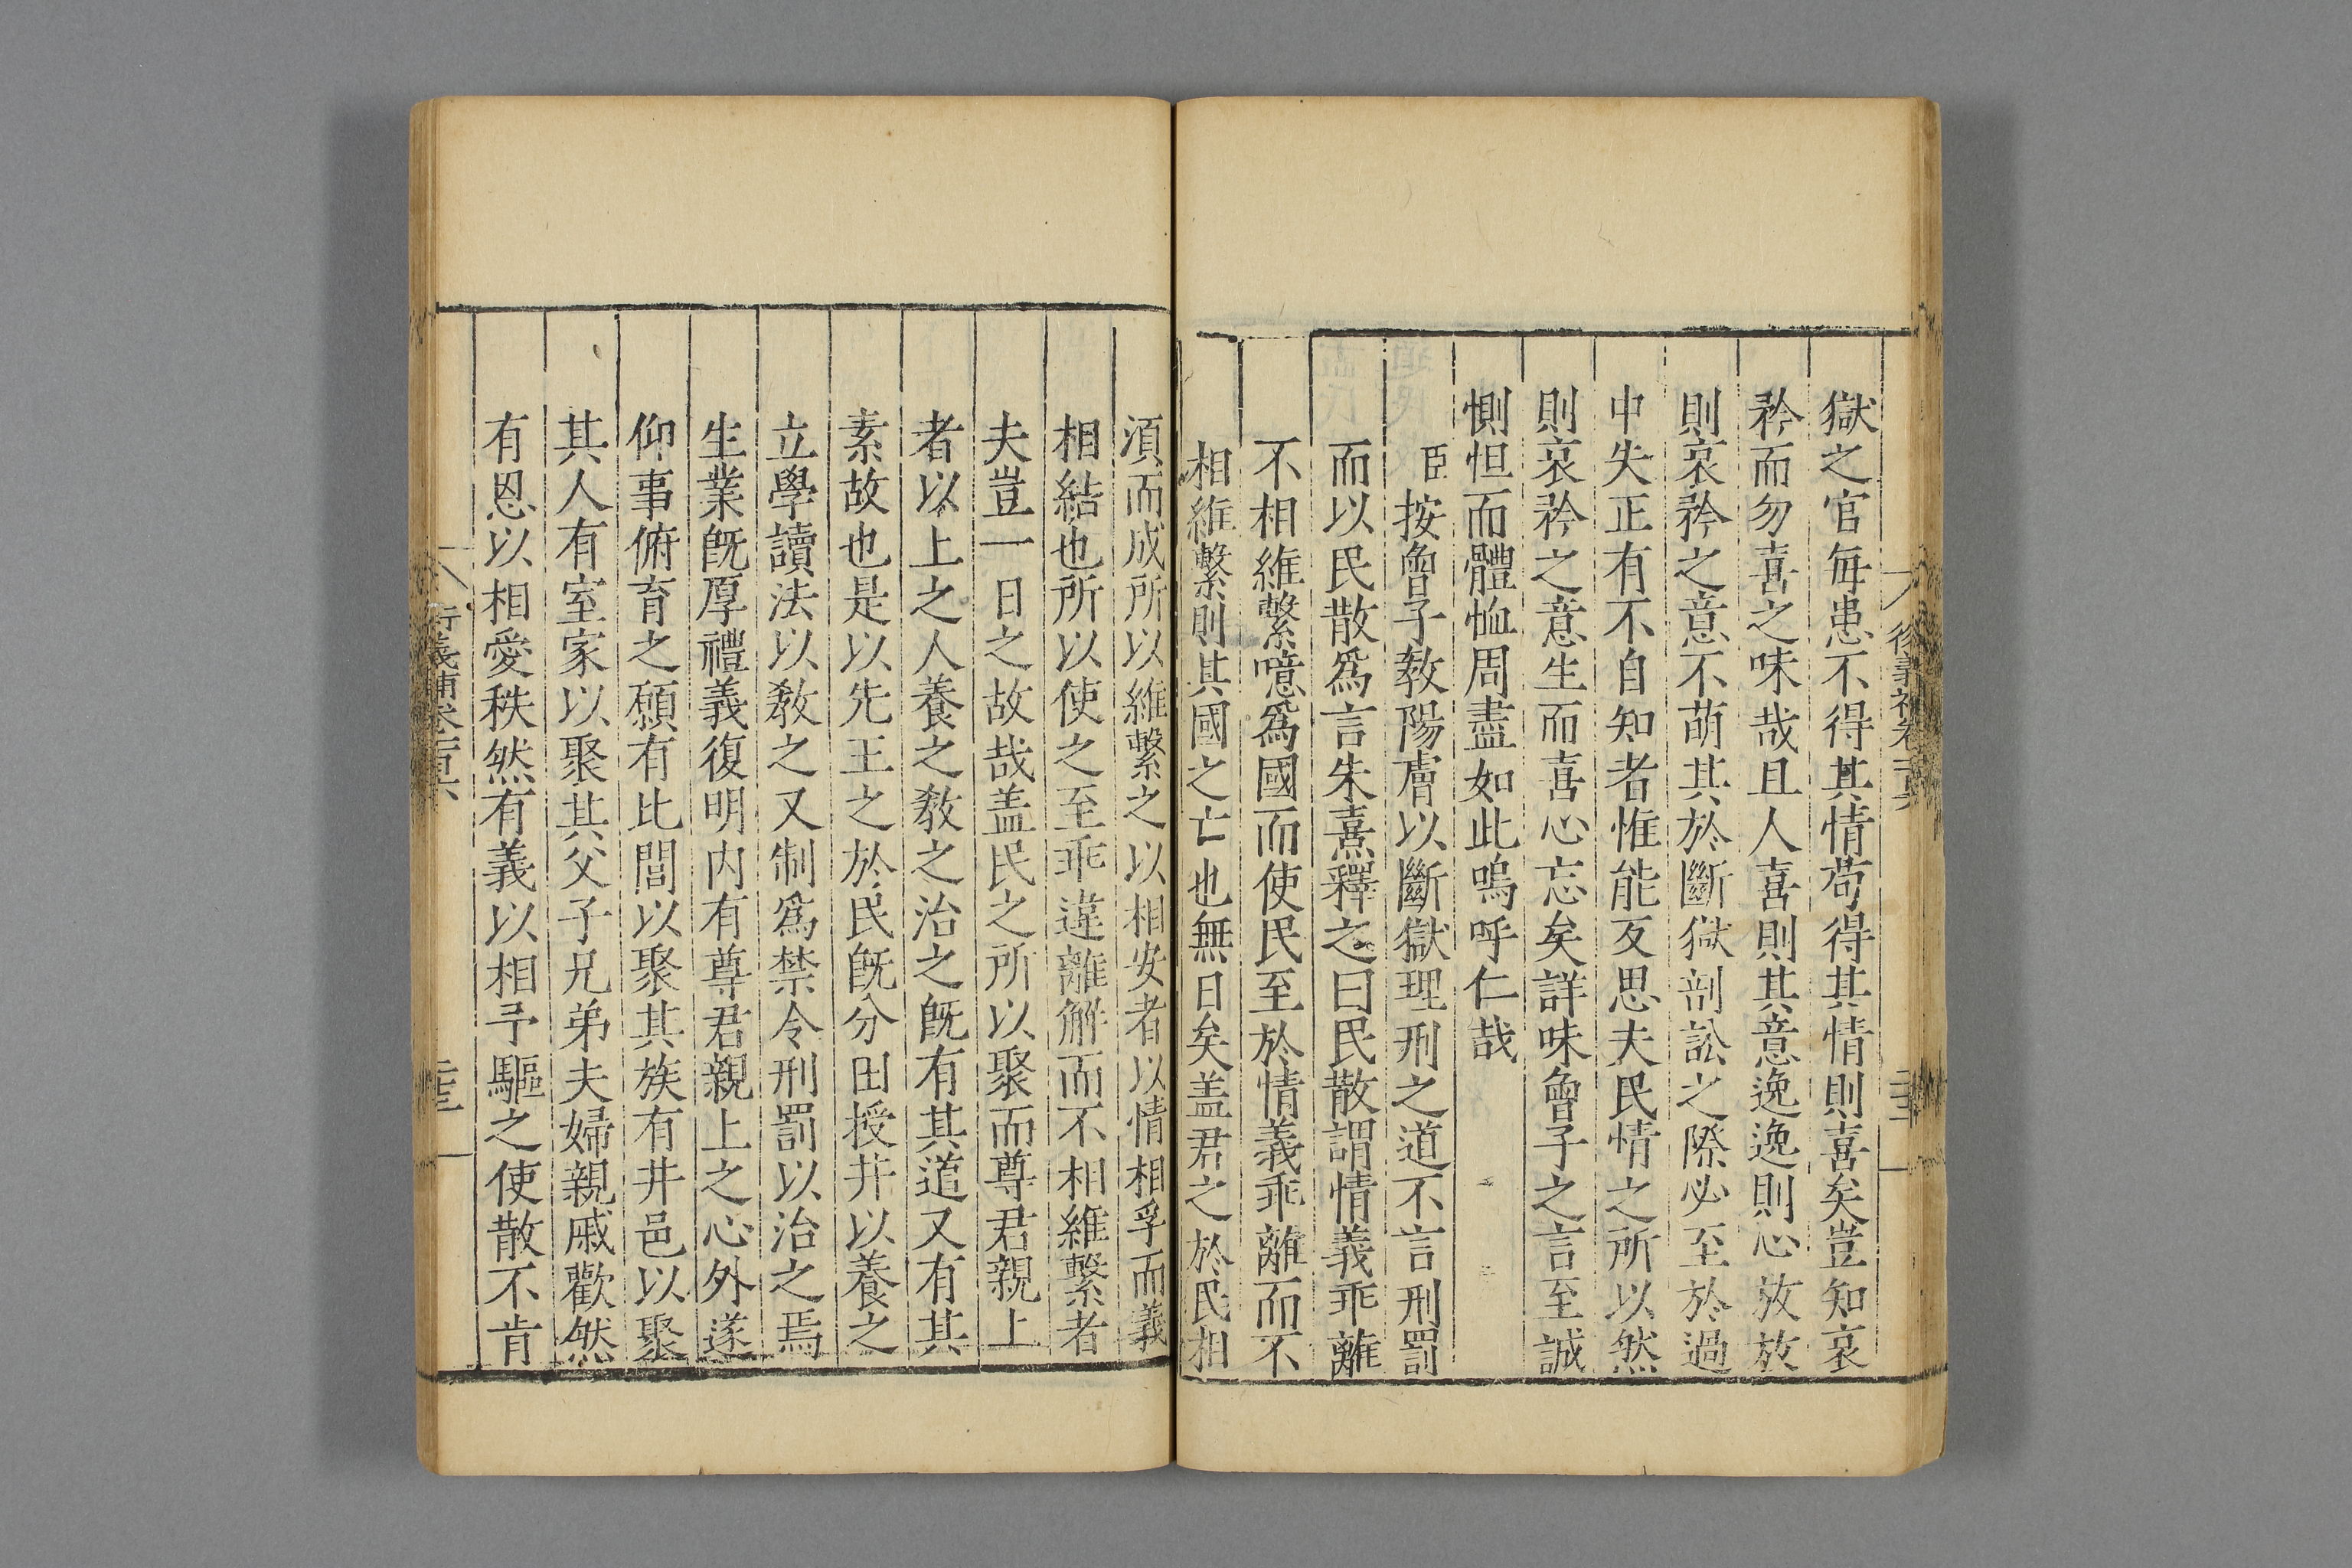 獄之官毎患不得其情苟得其情則喜矣豈知哀
矜而勿喜之味哉且人喜則其意逸逸則心放放
則哀矜之意不萌其於斷獄剖訟之際必至於過
中失正有不自知者惟能反思夫民情之所以然
則哀矜之意生而喜心忘矣詳味曾子之言至誠
惻怛而體恤周盡如此嗚呼仁哉
臣按曾子教陽膚以斷獄理刑之道不言刑罰
而以民散爲言朱熹釋之曰民散謂情義乖離
不相維繫噫爲國而使民至於情義乖離而不
相維繫則其國之亡也無日矣盖君之於民相
湏而成所以維繫之以相安者以情相孚而義
相結也所以使之至乖違離解而不相維繫者
夫豈一日之故哉盖民之所以聚而尊君親上
者以上之人養之教之治之既有其道又有其
素故也是以先王之於民既分田授井以養之
立學讀法以教之又制爲禁令刑罰以治之焉
生業既厚禮義復明内有尊君親上之心外遂
仰事俯育之願有比閭以聚其族有井邑以聚
其人有室家以聚其父子兄弟夫婦親戚歡然
有恩以相愛秩然有義以相予驅之使散不肯